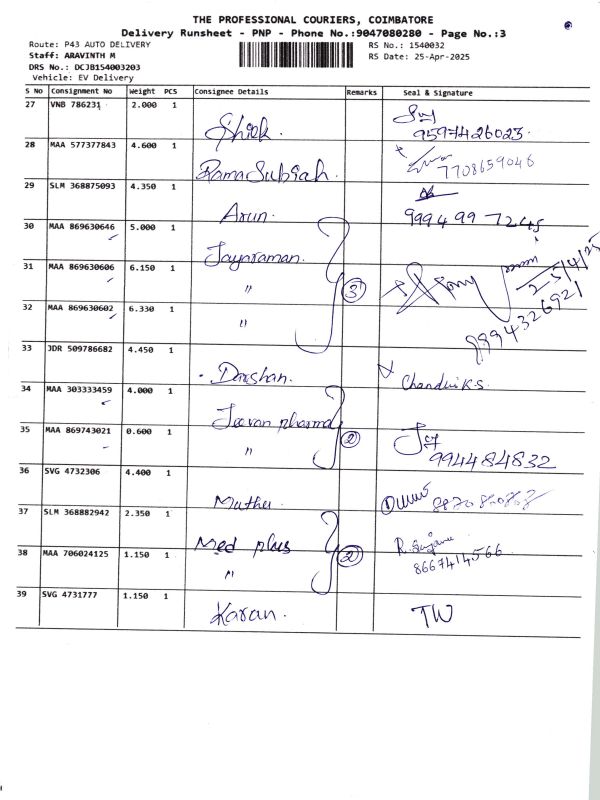 THE PROFESSIONAL COURIERS, COIMBATORE
Delivery Runsheet - PNP - Phone No.:9047080280 - Page No.:3
Route: P43 AUTO DELIVERY RS No.: 1540032
Staff: ARAVINTH M RS Date: 25-Apr-2025
DRS No.: DCJB154003203
Vehicle: EV Delivery
S No Consignment No Weight PCS Consignee Details Remarks Seal & Signature
27 VNB 786231 2.000 1
Shiek. 9597426023.
28 MAA 577377843 4.600 1
Rama Subiah. 7708659046
29 SLM 368875093 4.350 1
Arun. 9994997245
30 MAA 869630646 5.000 1
Jaynraman.
31 MAA 869630606 6.150 1
" 3 25/4/25
8894326921
32 MAA 869630602 6.330 1
"
33 JDR 509786682 4.450 1
Darshan. Chandni K.S.
34 MAA 303333459 4.000 1
Jeevan pharma
35 MAA 869743021 0.600 1
" 2 994484832
36 SVG 4732306 4.400 1
Muthu.
37 SLM 368882942 2.350 1
Med plus
38 MAA 706024125 1.150 1
" 2 8667414566
39 SVG 4731777 1.150 1
Karan. TW